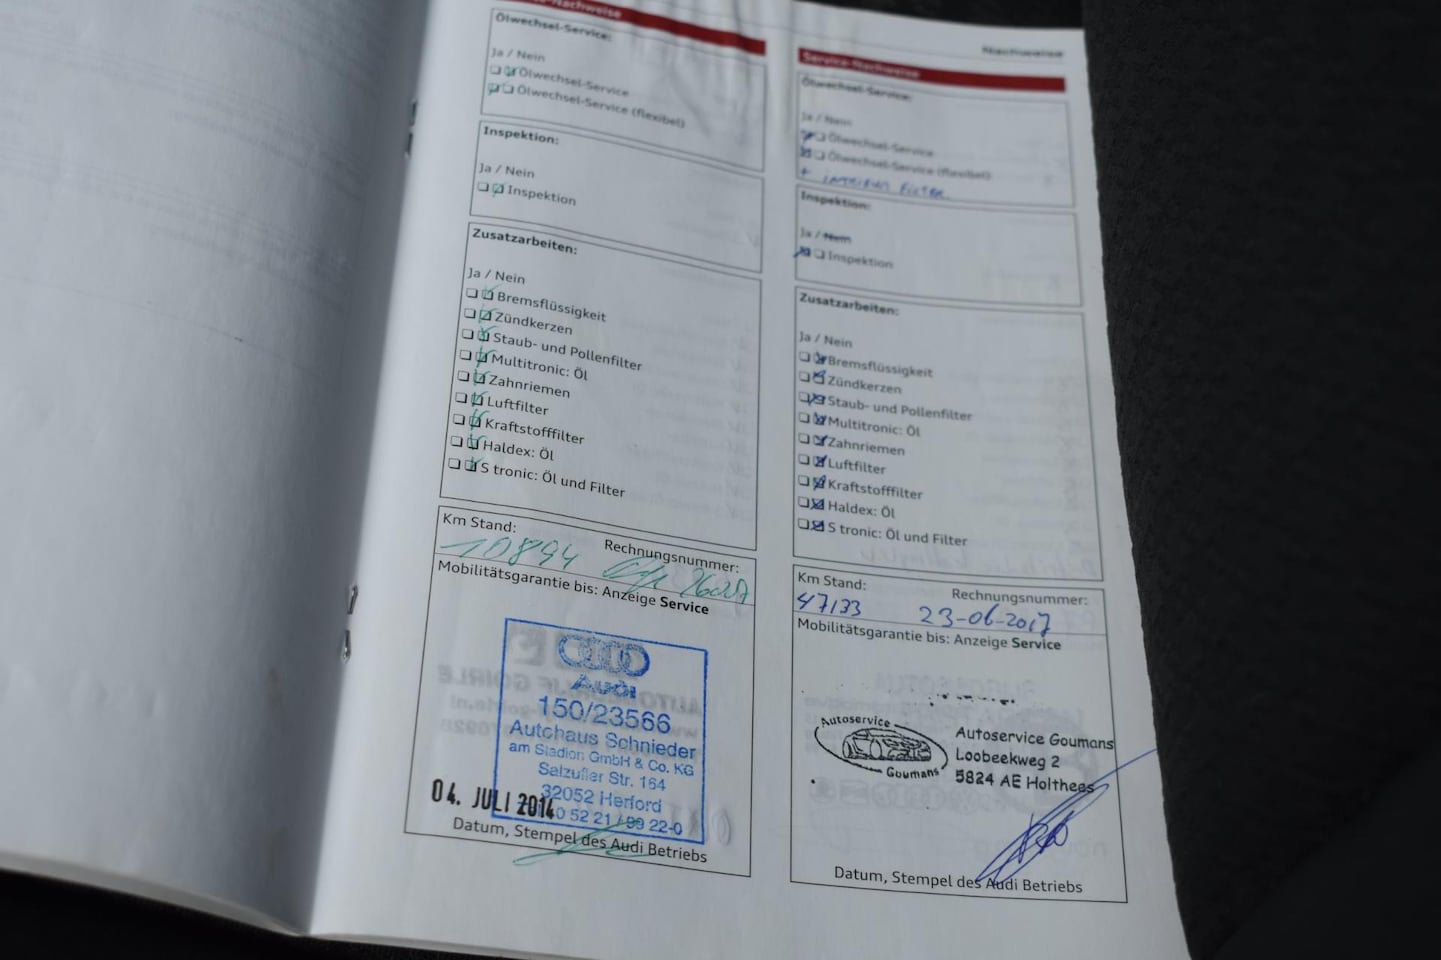 -Nachweise
Ölwechsel-Service:
Ja / Nein
Ölwechsel-Service
Ölwechsel-Service (flexibel)
Inspektion:
Ja / Nein
Inspektion
Zusatzarbeiten:
Ja / Nein
Bremsflüssigkeit
Zündkerzen
Staub- und Pollenfilter
Multitronic: Öl
Zahnriemen
Luftfilter
Kraftstofffilter
Haldex: Öl
S tronic: Öl und Filter
Km Stand:
Rechnungsnummer:
10894
Mobilitätsgarantie bis: Anzeige Service
Audi
150/23566
Autohaus Schnieder
am Stadion GmbH & Co. KG
Salzufler Str. 164
32052 Herford
0 52 21 / 99 22-0
04. JULI 2014
Datum, Stempel des Audi Betriebs
Nachweise
Service-Nachweise
Ölwechsel-Service:
Ja / Nein
Ölwechsel-Service
Ölwechsel-Service (flexibel)
+ interieur Filter.
Inspektion:
Ja / Nein
Inspektion
Zusatzarbeiten:
Ja / Nein
Bremsflüssigkeit
Zündkerzen
Staub- und Pollenfilter
Multitronic: Öl
Zahnriemen
Luftfilter
Kraftstofffilter
Haldex: Öl
S tronic: Öl und Filter
Km Stand:
Rechnungsnummer:
47133
23-06-2017
Mobilitätsgarantie bis: Anzeige Service
Autoservice
Goumans
Autoservice Goumans
Loobeekweg 2
5824 AE Holthees
Datum, Stempel des Audi Betriebs